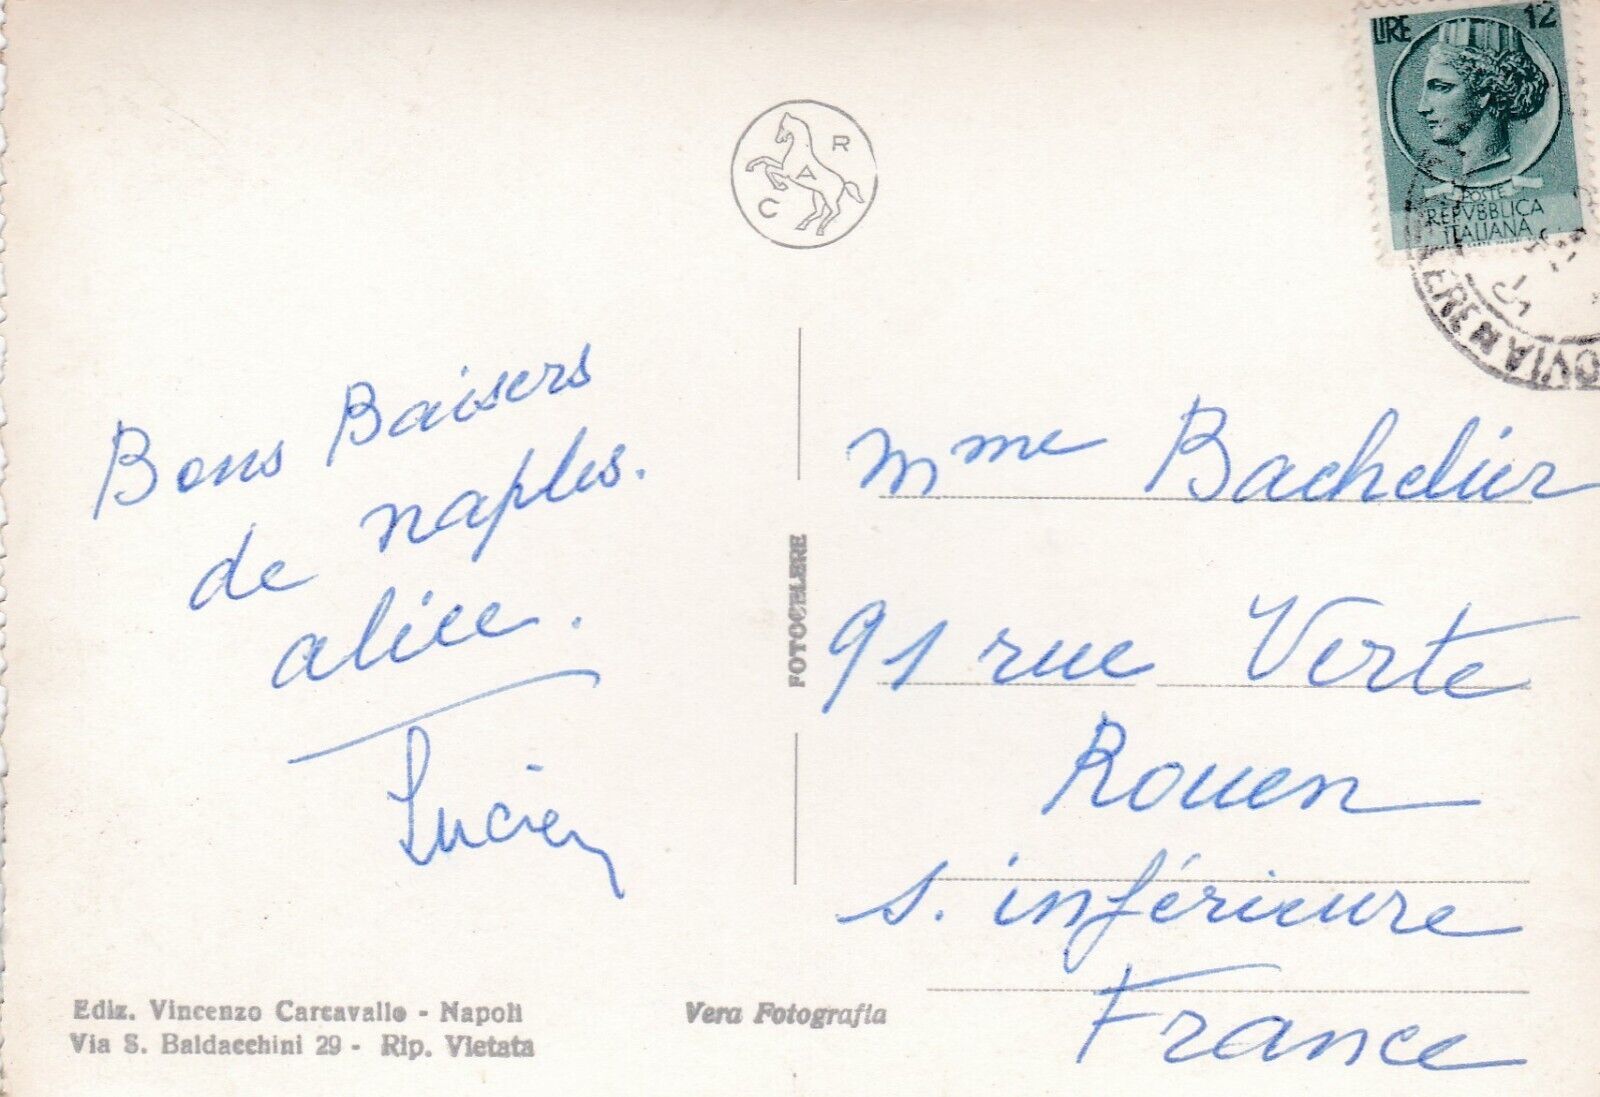 LIRE 12
POSTE
REPVBBLICA
ITALIANA
R
A
C
Bons Baisers
de naples.
alice.
Lucien
FOTOCELERE
Mme Bachelier
91 rue Verte
Rouen
S. inférieure
France
Ediz. Vincenzo Carcavallo - Napoli
Via S. Baldacchini 29 - Rip. Vietata
Vera Fotografia